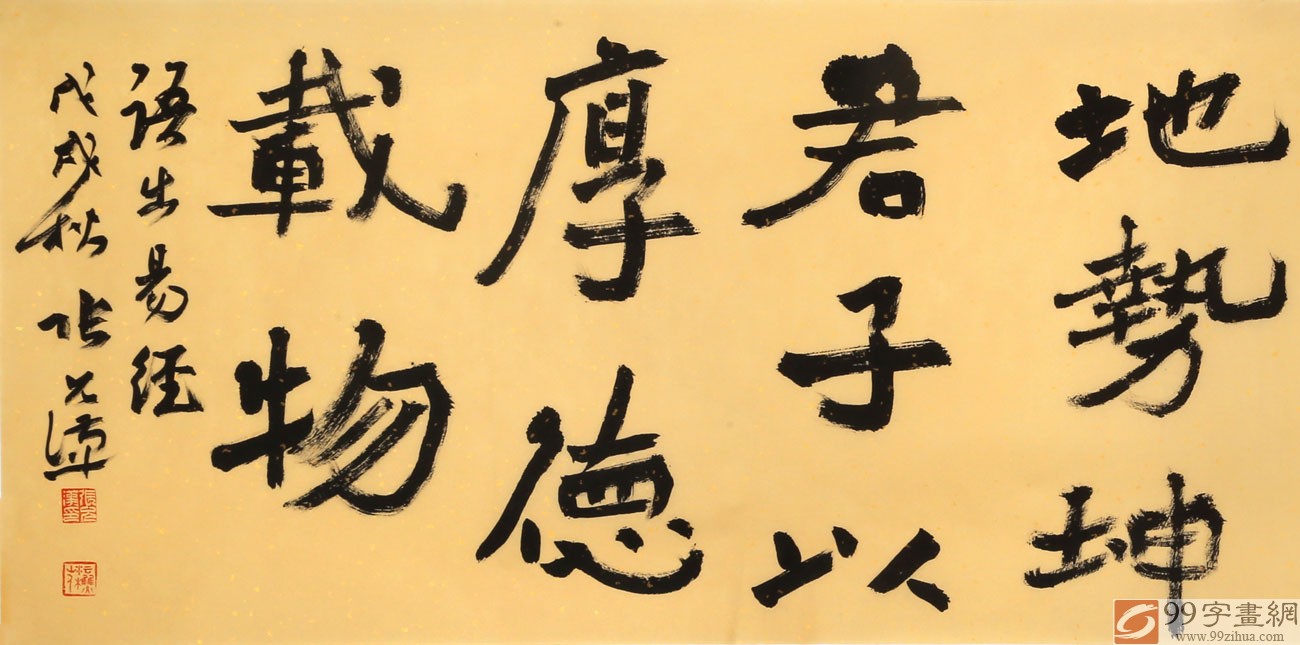 地勢坤
君子以
厚德
載物
語出易經
戊戌秋 张
99字畫網
www.99zihua.com